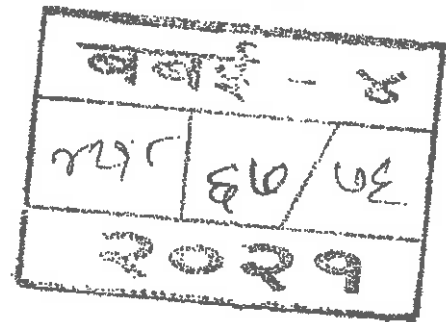 बबई - ४
६७/७६
२०२१